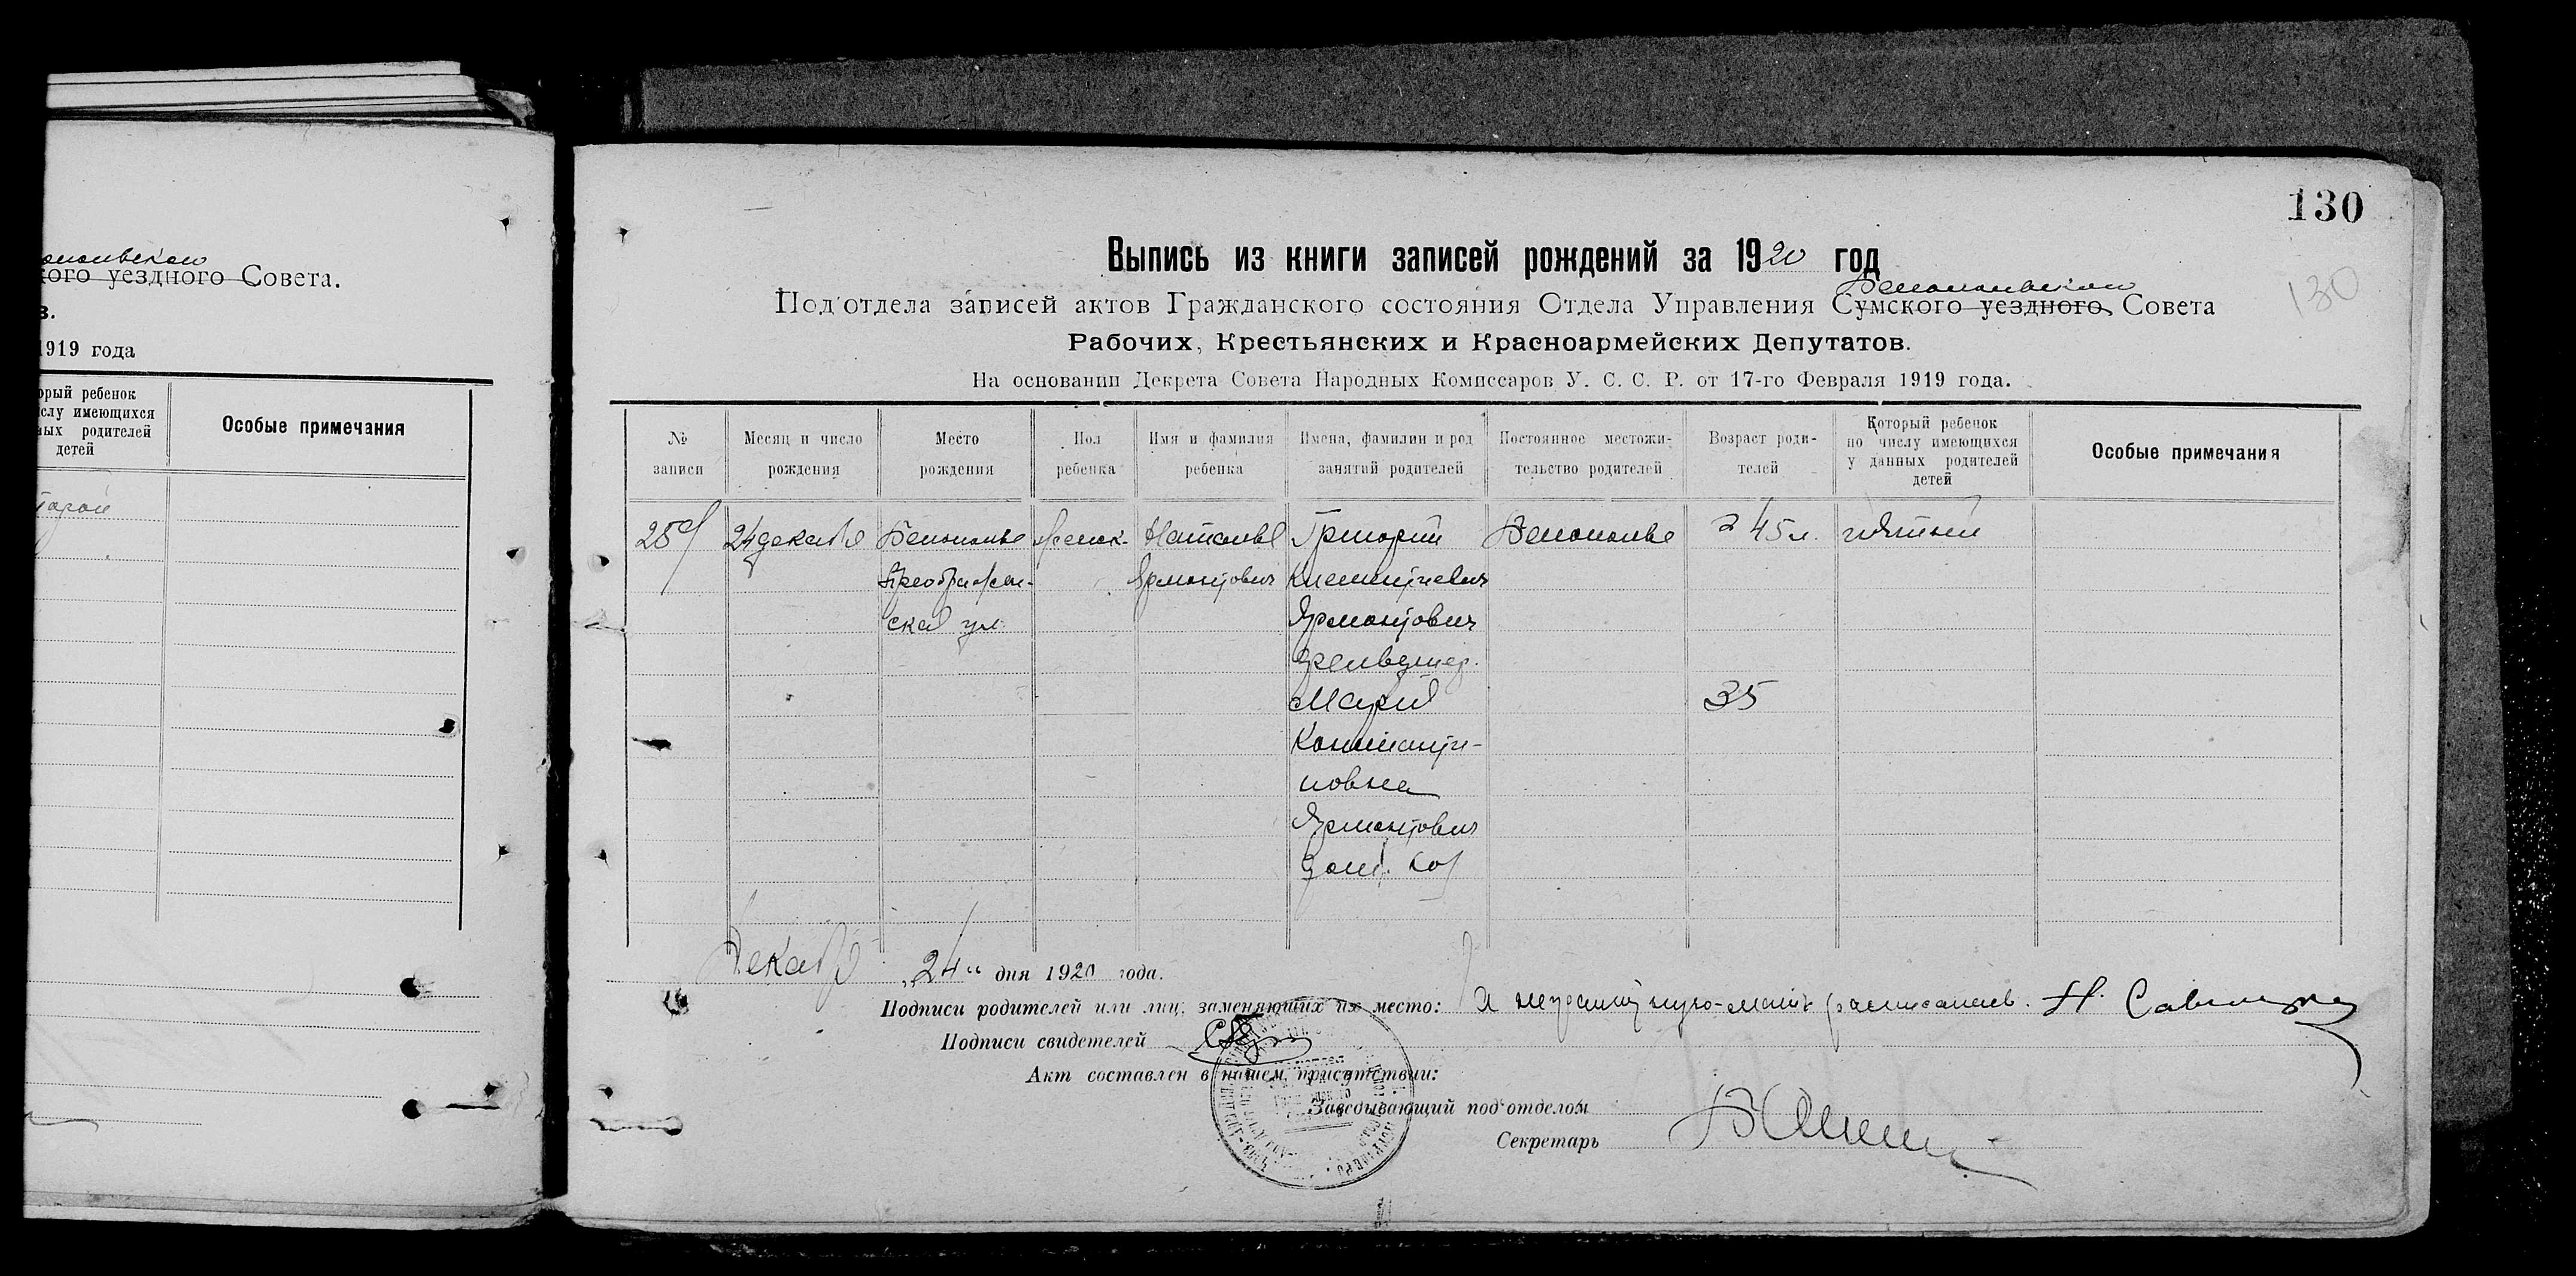 Совета.
1919 года
Особые примечания
детей
130
130
Выпись из книги записей рождений за 1920 год
Белопольского
Под'отдела записей актов Гражданского состояния Отдела Управления Сумского уездного Совета
Рабочих, Крестьянских и Красноармейских Депутатов.
На основании Декрета Совета Народных Комиссаров У. С. С. Р. от 17-го Февраля 1919 года.
№ записи
Месяц и число рождения
Место рождения
Пол ребенка
Имя и фамилия ребенка
Имена, фамилии и род занятий родителей
Постоянное местожительство родителей
Возраст родителей
Который ребенок по числу имеющихся у данных родителей детей
Особые примечания
24 декабря
Белополье
Преображен-
ская ул.
женск.
Наталья
Ярмонтович
Григорий
Климентиевич
Ярмонтович
фельдшер.
Мария
Константи-
новна
Ярмонтович
дом. хоз
Белополье
45 л.
35
пятый
Декабря „24“ дня 1920 года.
Подписи родителей или лиц, заменяющих их место:
Подписи свидетелей
Акт составлен в нашем присутствии:
Заведывающий под'отделом
Секретарь